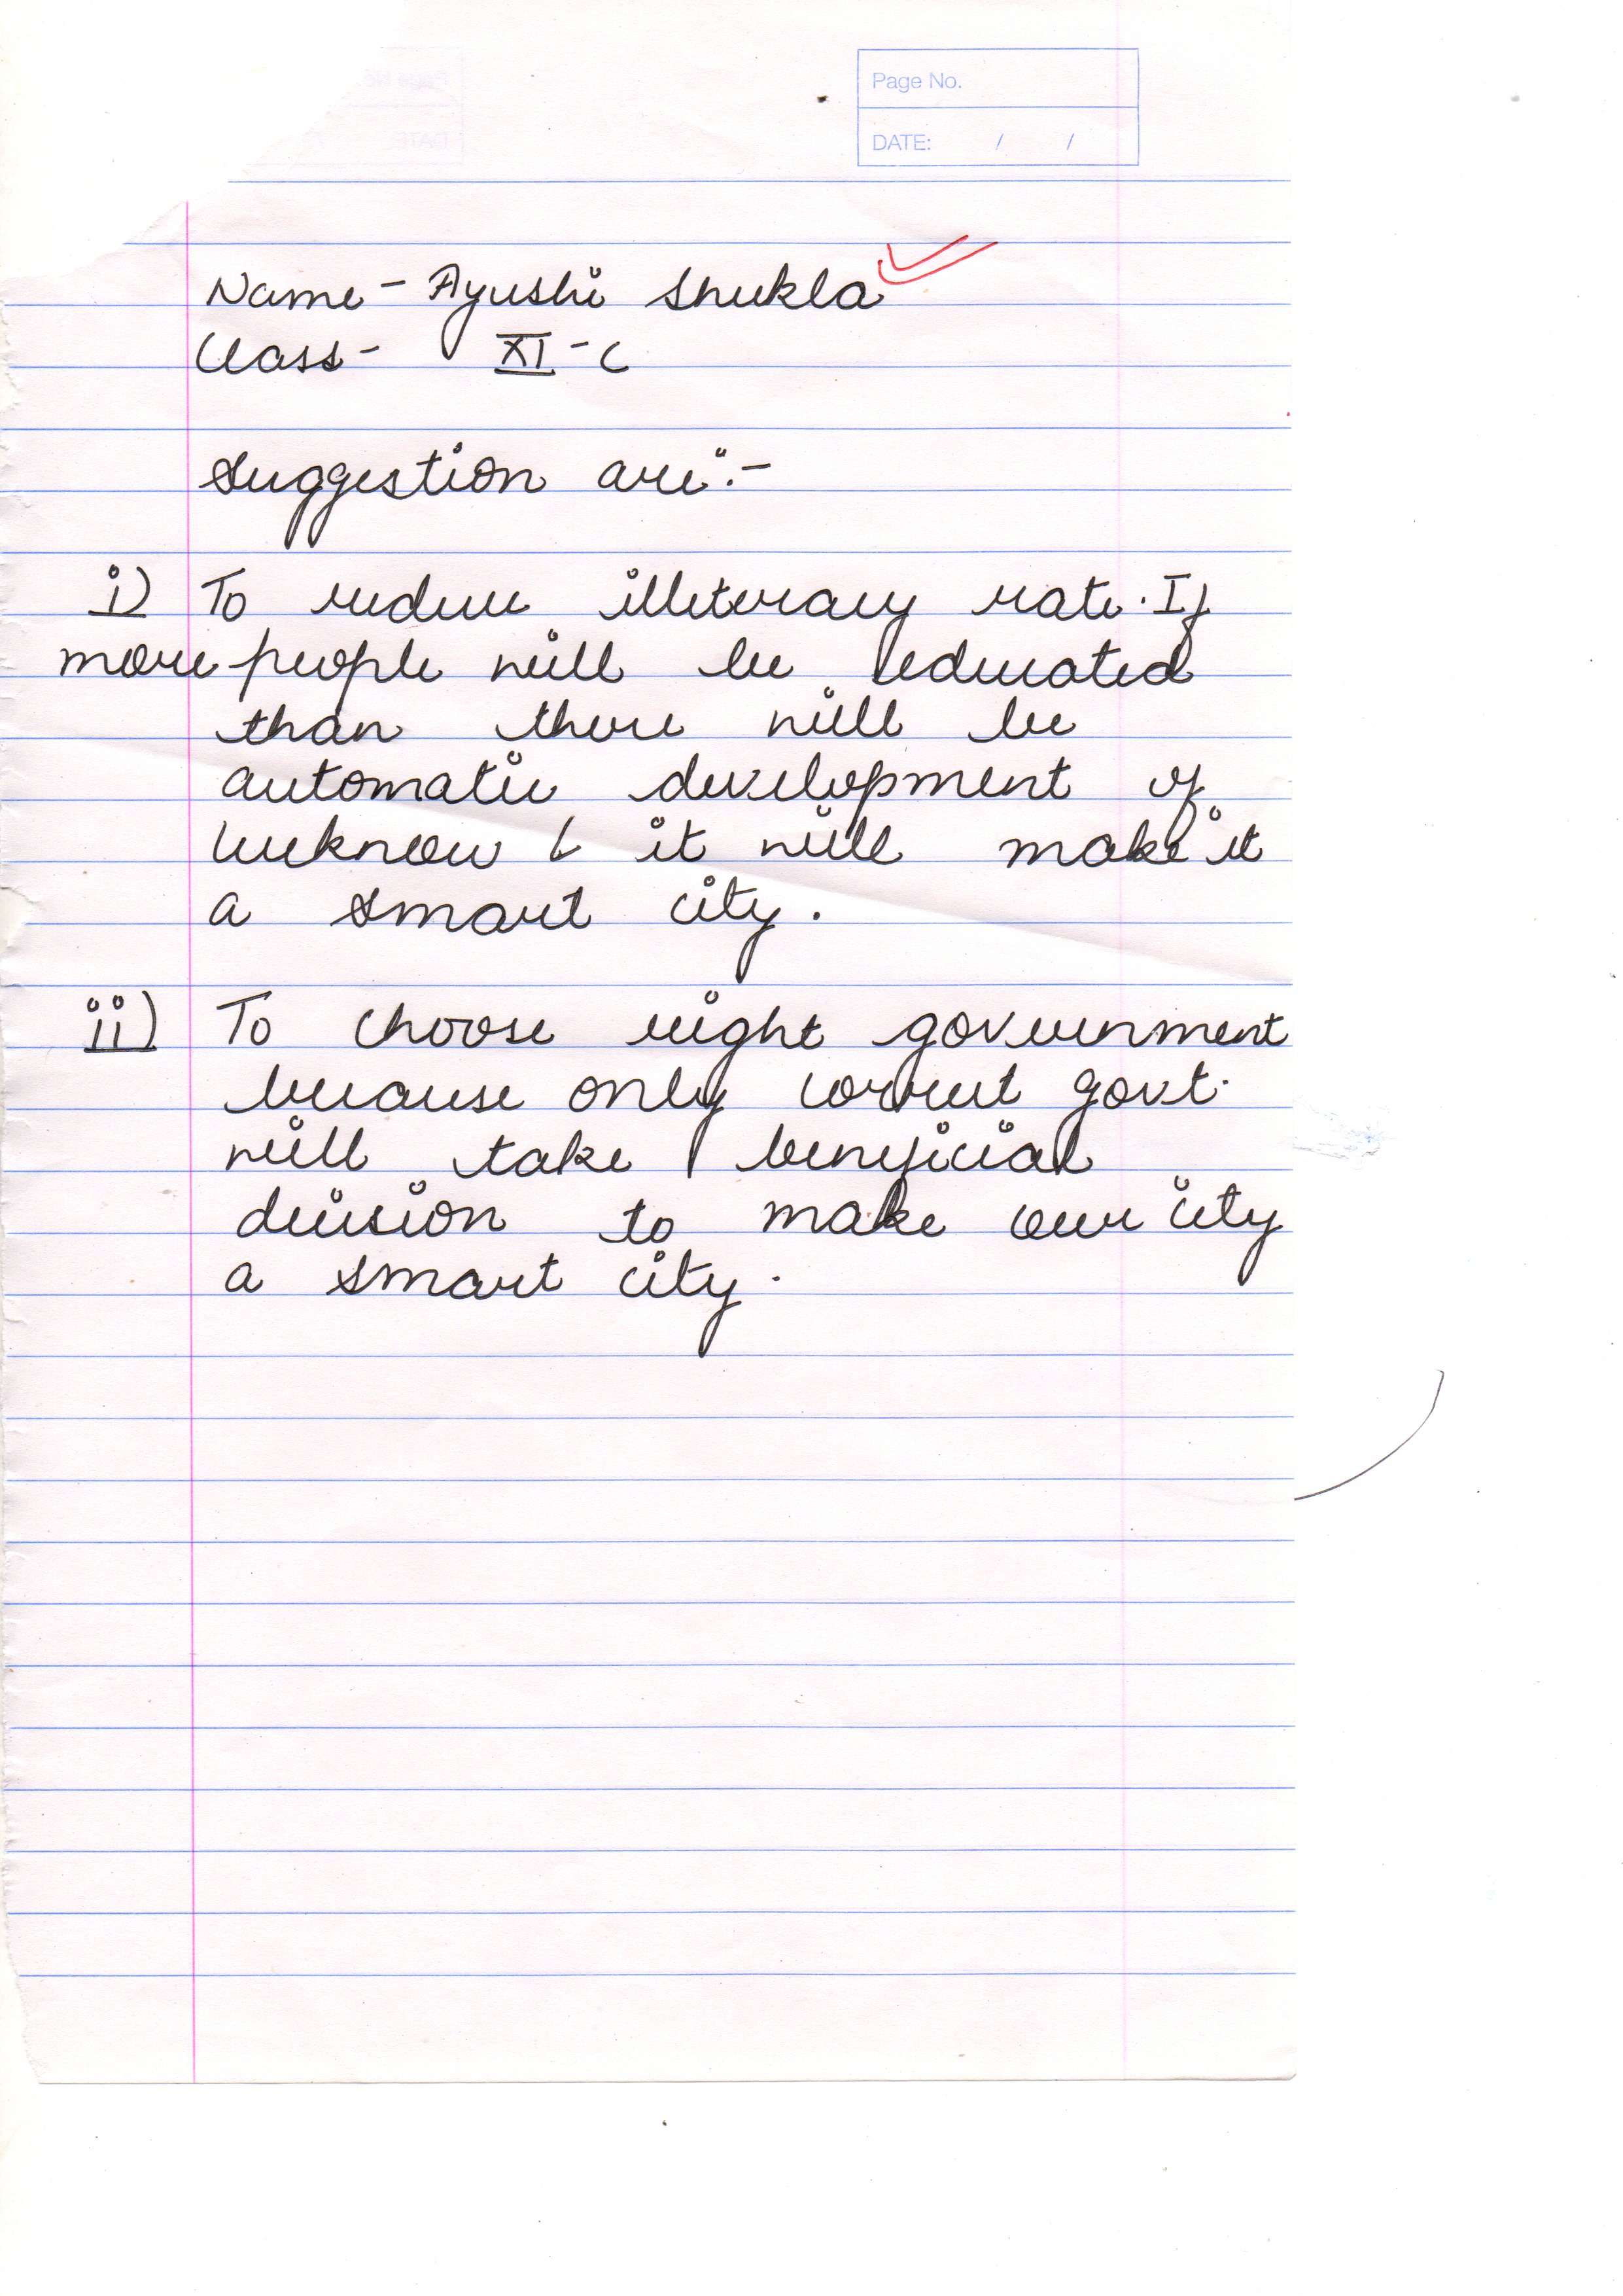 Page No.
DATE: / /
Name - Ayushi Shukla
Class - XI - C
Suggestion are :-
i) To reduce illiteracy rate. If
more people will be educated
than there will be
automatic development of
Lucknow & it will make it
a smart city.
ii) To choose right government
because only correct govt.
will take beneficial
decision to make our city
a smart city.